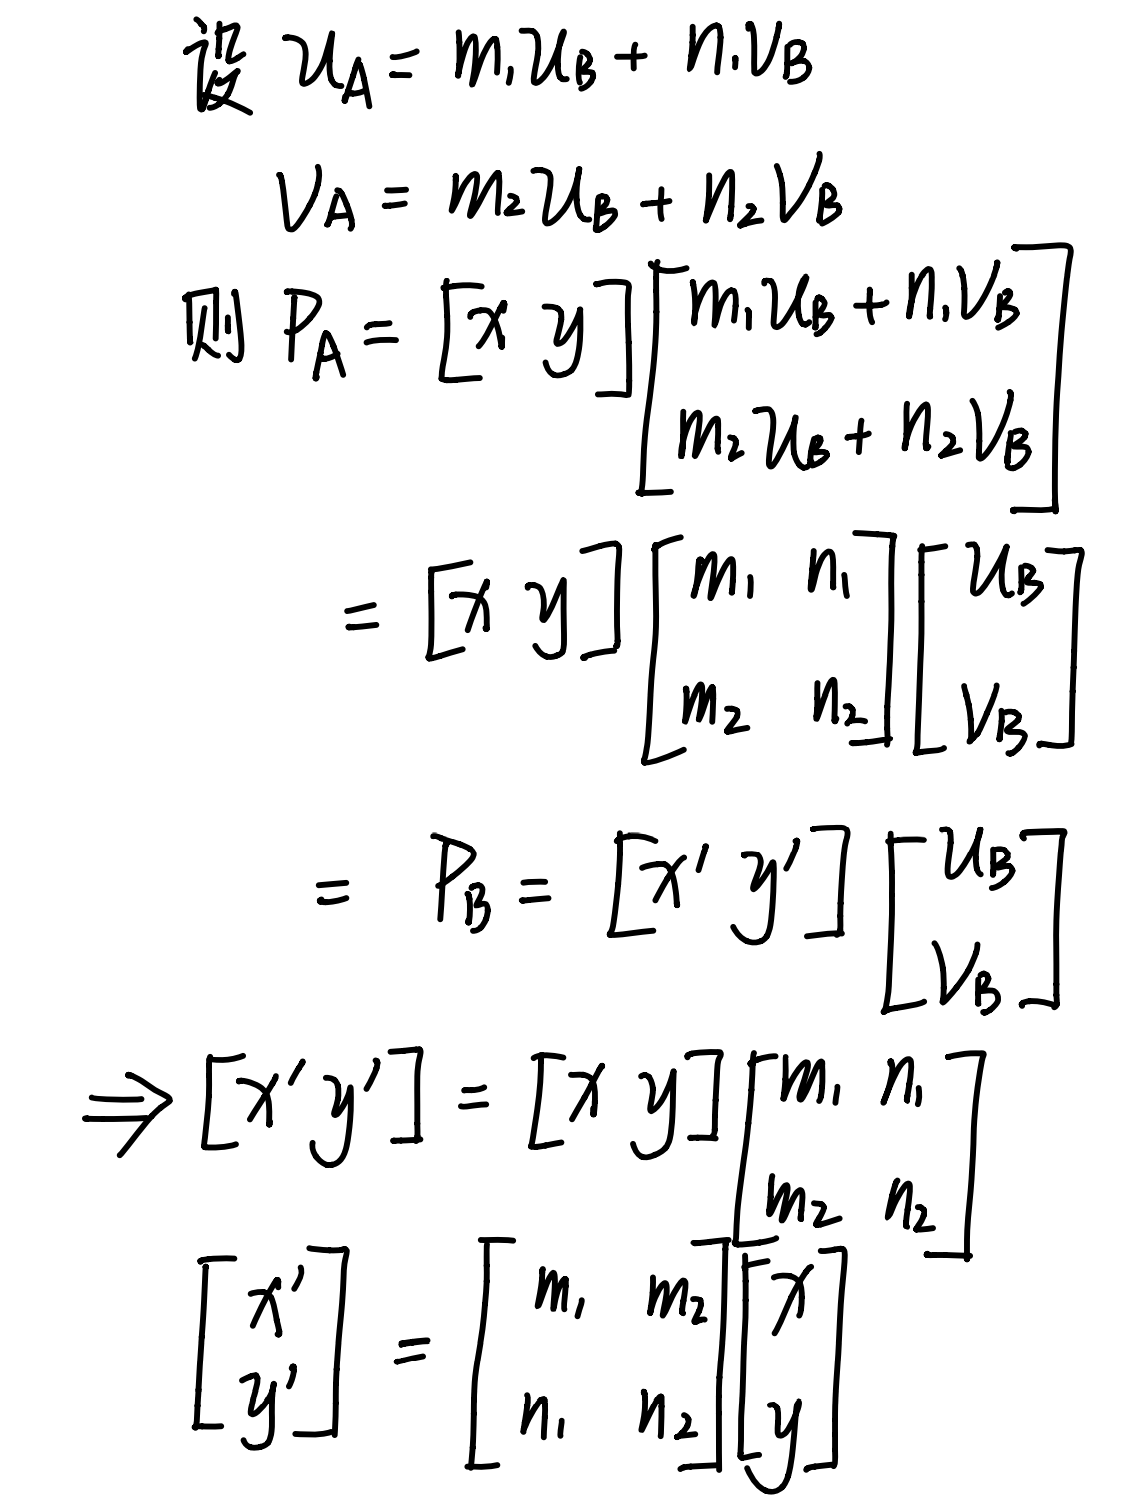 设 u_A = m_1 u_B + n_1 v_B
v_A = m_2 u_B + n_2 v_B
则 P_A = [x y] [m_1 u_B + n_1 v_B
m_2 u_B + n_2 v_B]
= [x y] [m_1 n_1
m_2 n_2] [u_B
v_B]
= P_B = [x' y'] [u_B
v_B]
⇒ [x' y'] = [x y] [m_1 n_1
m_2 n_2]
[x'
y'] = [m_1 m_2
n_1 n_2] [x
y]